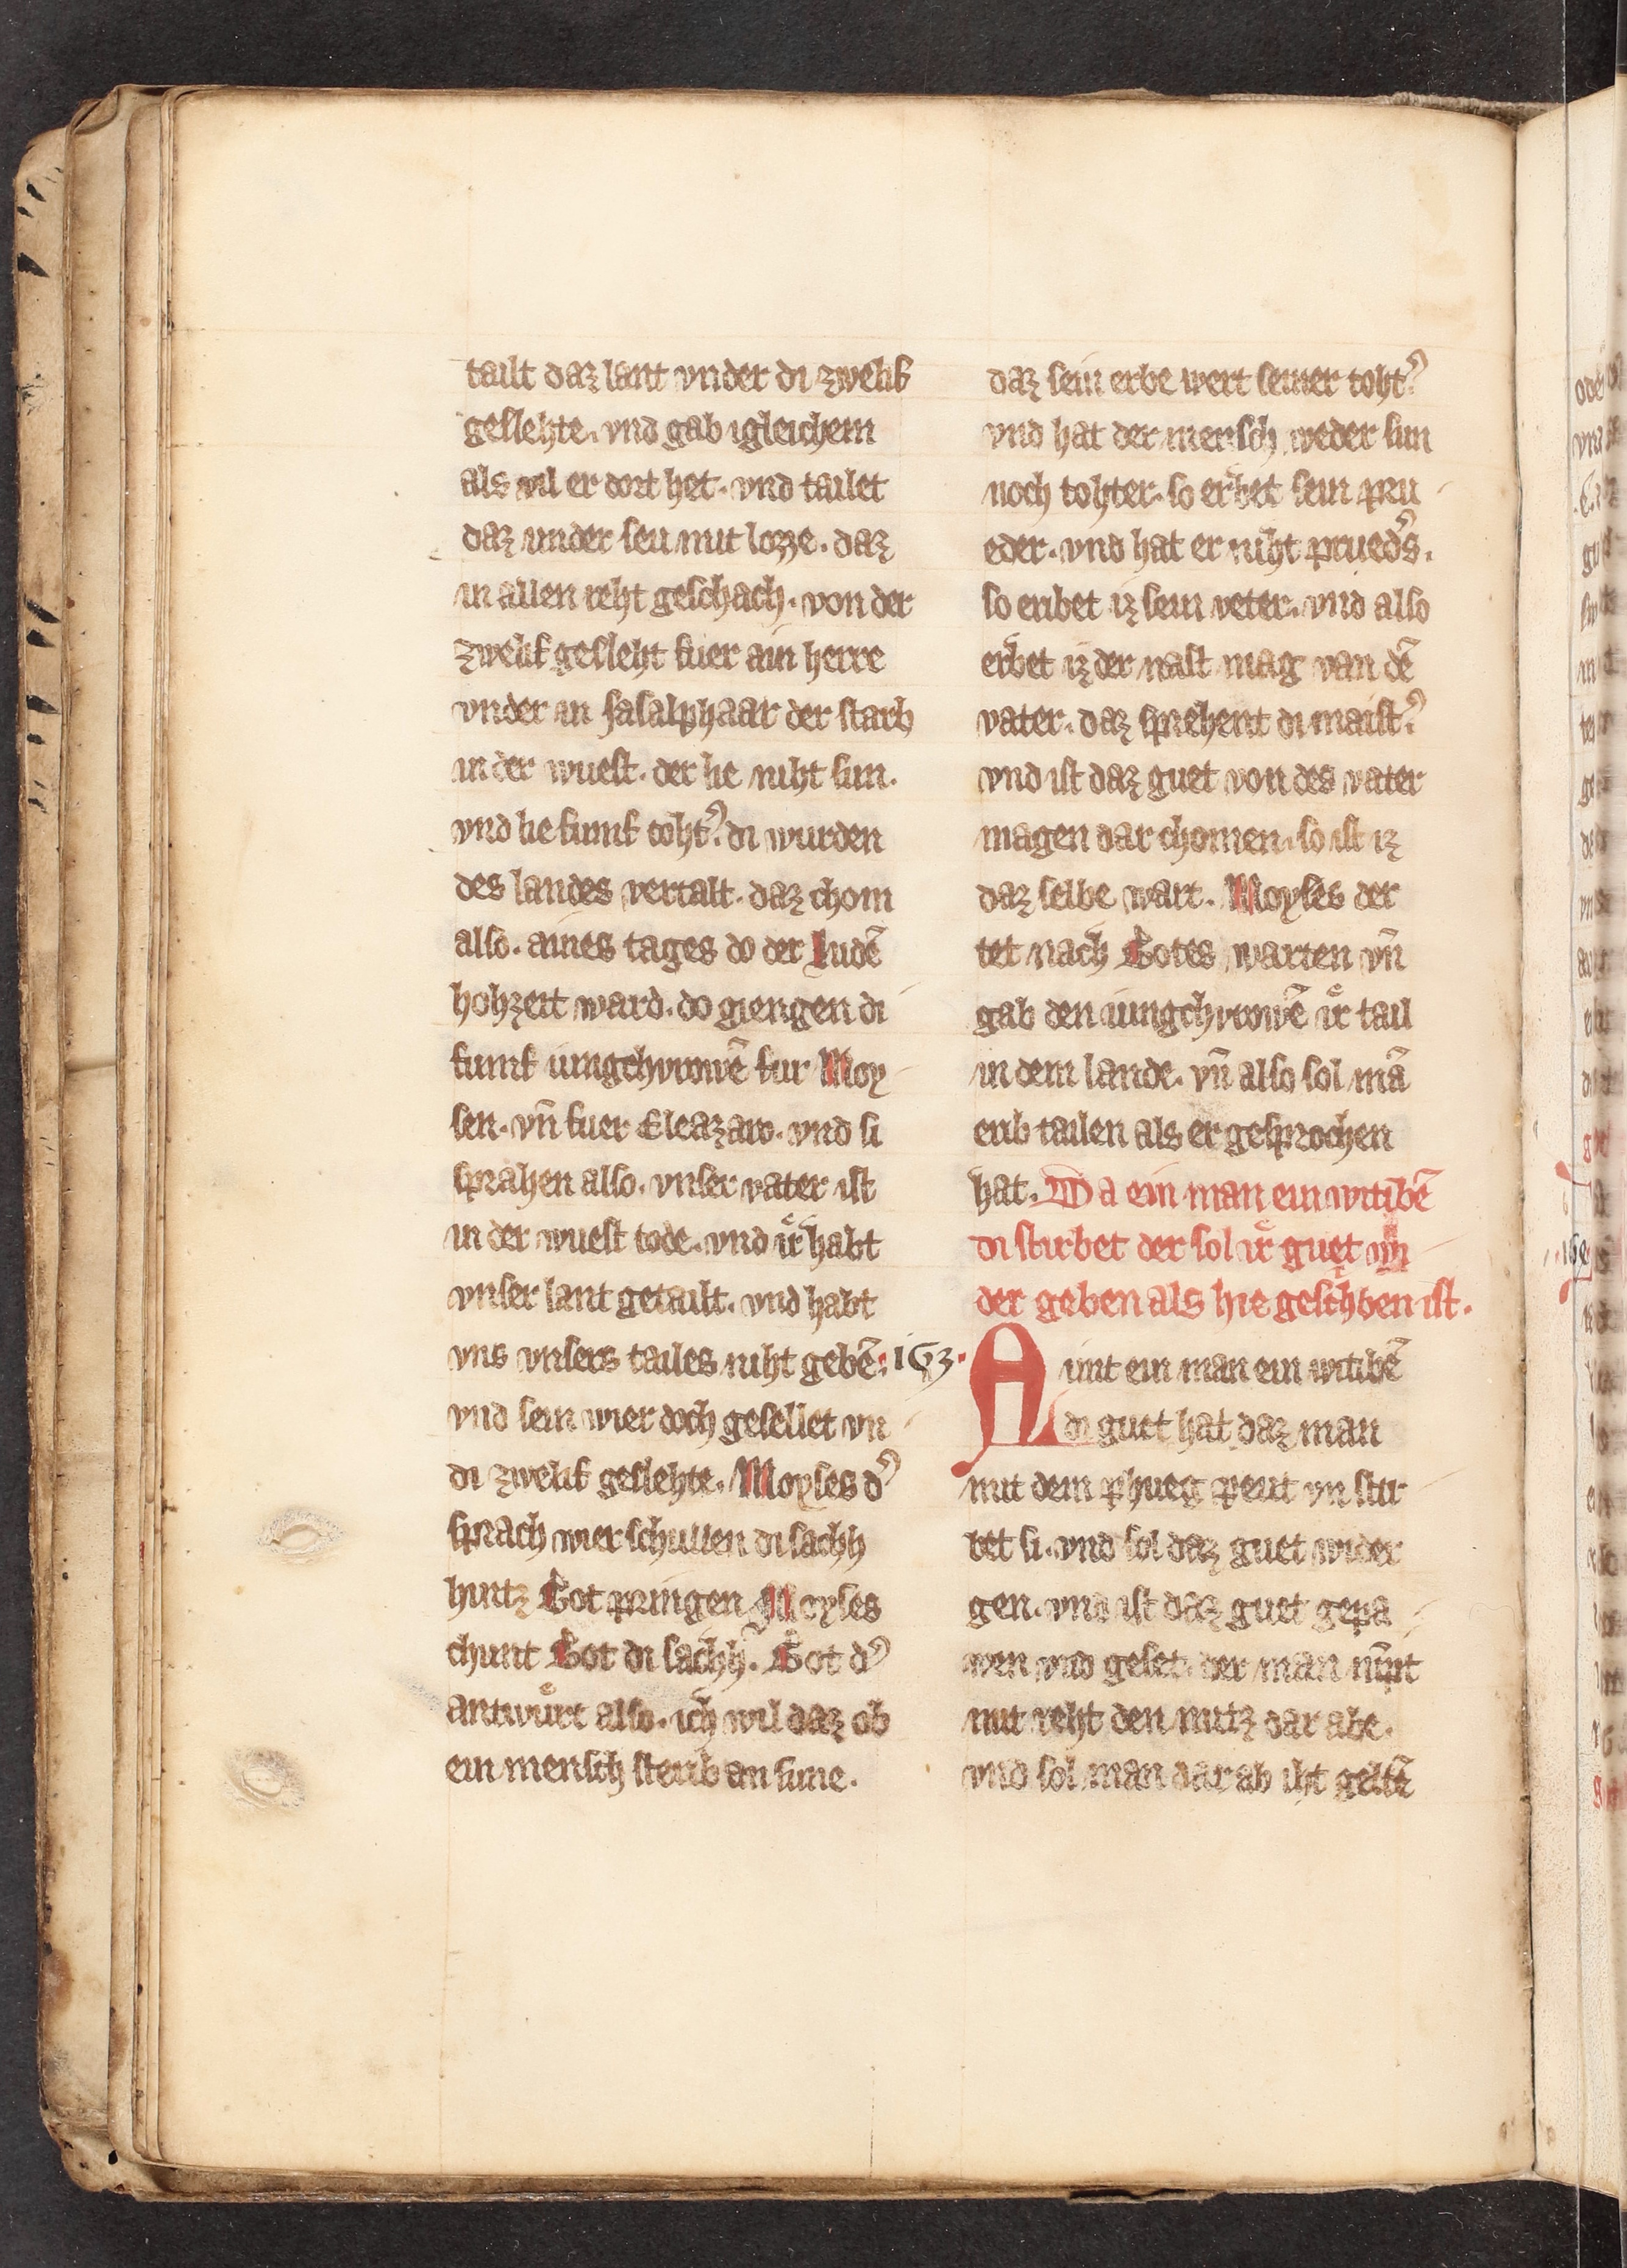 tailt daz lant vnder di zwelif
geslehte. vnd gab igleichem
als vil er dort het. vnd tailet
daz vnder seu mit lozze. daz
in allen reht geschach. von der
zwelif gesleht fuer ain herre
vnder in salalphaar der starb
in der wuest. der lie niht sun.
vnd lie fumf toht͛. di wurden
des landes vertailt. daz chom
also. aines tages do der Iudē
hohzeit ward. do giengen di
fumf iungchvrowē fur Moy
sen. vn̄ fuer Eleazaro. vnd si
sprahen also. vnser vater ist
in der wuest tode. vnd ir habt
vnser lant getailt. vnd habt
vns vnsers tailes niht gebē.
vnd sein wier doch gesellet vn
di zwelif geslehte. Moyses d͛
sprach wier schullen di sachh
hintz Got pringen Moyses
chunt Got di sachh. Got d͛
antwůrt also. ich wil daz ob
ein mensch sterib an sune.
daz sein erbe wert seiner toht͛.
vnd hat der mensch weder sun
noch tohter. so erbet sein pru
eder. vnd hat er niht prued͛s.
so eribet iz sein veter. vnd also
erbet iz der nast mag van dē
vater. daz sprehent di maist͛.
vnd ist daz guet von des vater
magen dar chomen. so ist iz
daz selbe wart. Moyses der
tet nach Gotes warten vn̄
gab den iungchvrowē ir tail
in dem lande. vn̄ also sol mā
erib tailen als er gesprochen
hat. Da ein man ein witibē
di stirbet der sol ir guet wi
der geben als hie geschͥben ist.
163.
A imt ein man ein witibē
di guet hat daz man
mit dem phueg peut vn stir
bet si. vnd sol daz guet wider
gen. vnd ist daz guet gepa
wen vnd geset. der man nīmt
mit reht den nutz dar abe.
vnd sol man dar ab iht geltē